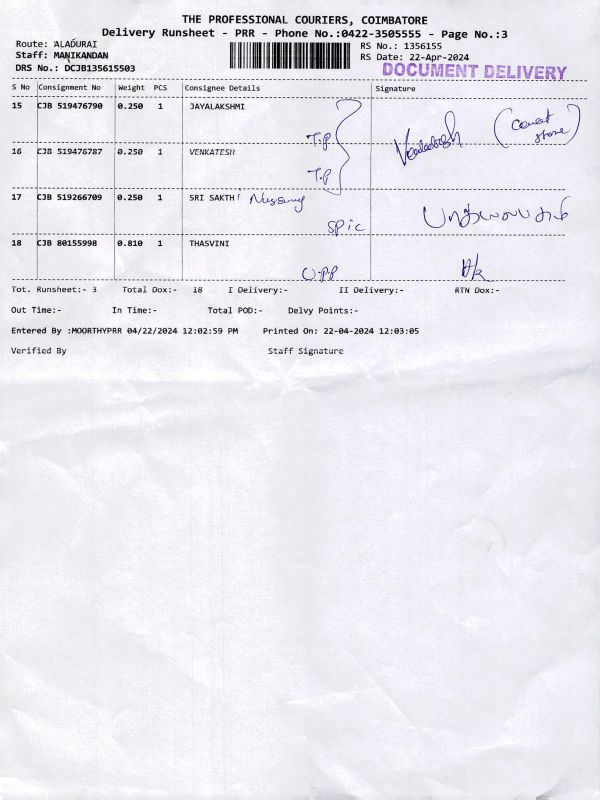 THE PROFESSIONAL COURIERS, COIMBATORE
Delivery Runsheet - PRR - Phone No.:0422-3505555 - Page No.:3
Route: ALADURAI
Staff: MANIKANDAN
DRS No.: DCJB135615503
RS No.: 1356155
RS Date: 22-Apr-2024
DOCUMENT DELIVERY
S No Consignment No Weight PCS Consignee Details Signature
15 CJB 519476790 0.250 1 JAYALAKSHMI
T.P
16 CJB 519476787 0.250 1 VENKATESH
T.P
17 CJB 519266709 0.250 1 SRI SAKTHI
Spic
18 CJB 80155998 0.810 1 THASVINI
Tot. Runsheet:- 3 Total Dox:- 18 I Delivery:- II Delivery:- RTN Dox:-
Out Time:- In Time:- Total POD:- Delvy Points:-
Entered By :MOORTHYPRR 04/22/2024 12:02:59 PM Printed On: 22-04-2024 12:03:05
Verified By Staff Signature